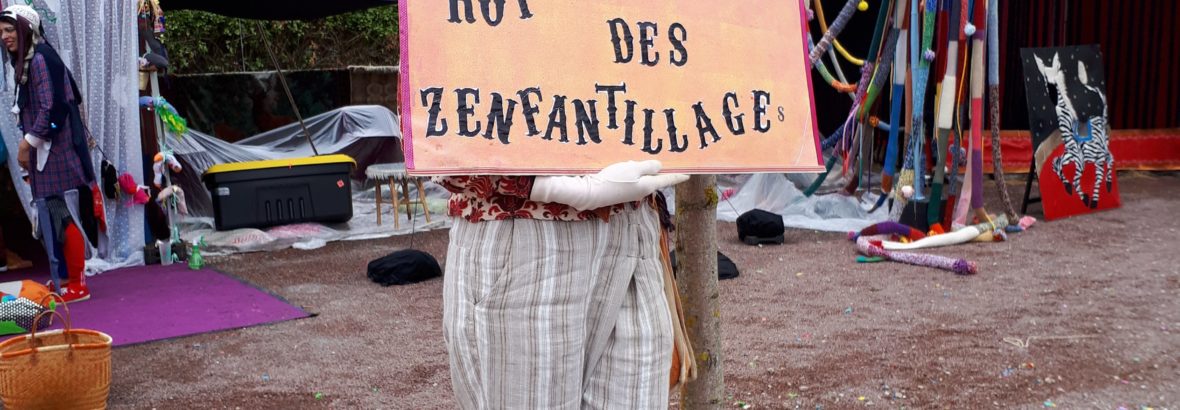 ROY
DES
ZENFANTILLAGEs